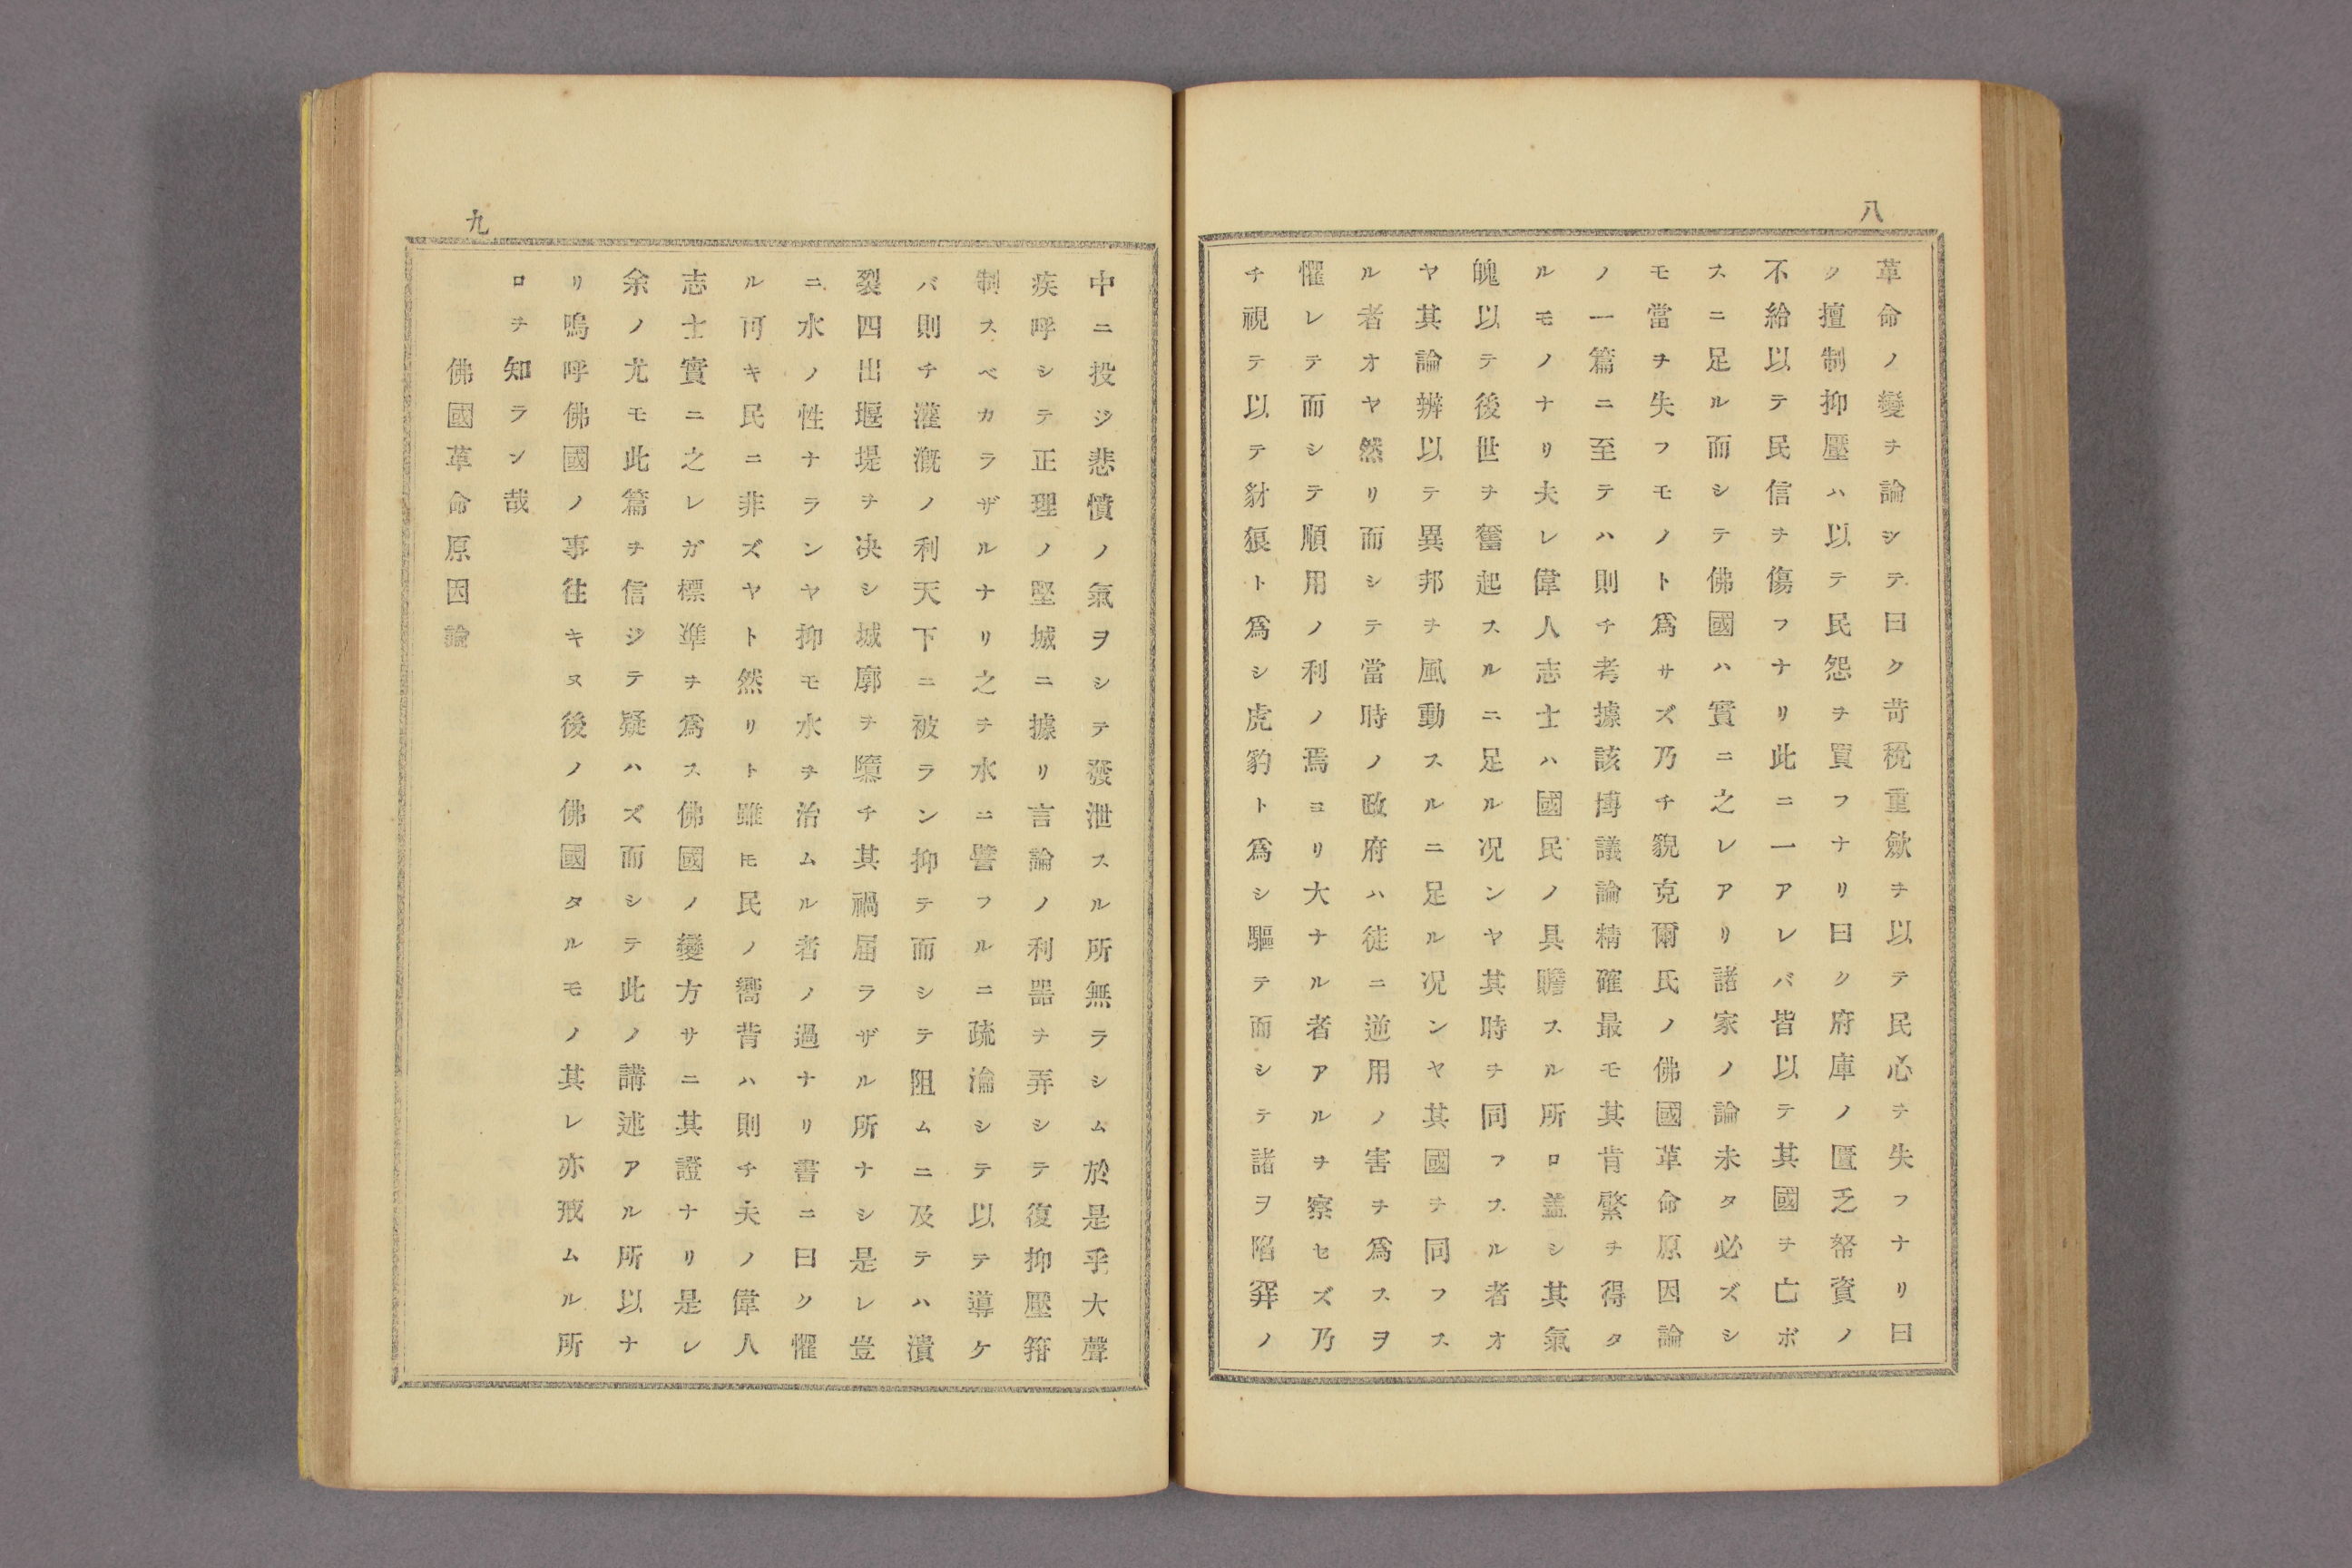 八
革命ノ變ヲ論シテ曰ク苛稅重歛ヲ以テ民心ヲ失フナリ曰
ク擅制抑壓ハ以テ民怨ヲ買フナリ曰ク府庫ノ匱乏帑資ノ
不給以テ民信ヲ傷フナリ此ニ一アレバ皆以テ其國ヲ亡ボ
スニ足ル而シテ佛國ハ實ニ之レアリ諸家ノ論未タ必ズシ
モ當ヲ失フモノト爲サズ乃チ貌克爾氏ノ佛國革命原因論
ノ一篇ニ至テハ則チ考據該博議論精確最モ其肯綮ヲ得タ
ルモノナリ夫レ偉人志士ハ國民ノ具瞻スル所ロ盖シ其氣
魄以テ後世ヲ奮起スルニ足ル况ンヤ其時ヲ同フスル者オ
ヤ其論辨以テ異邦ヲ風動スルニ足ル况ンヤ其國ヲ同フス
ル者オヤ然リ而シテ當時ノ政府ハ徒ニ逆用ノ害ヲ爲スヲ
懼レテ而シテ順用ノ利ノ焉ヨリ大ナル者アルヲ察セズ乃
チ視テ以テ豺狼ト爲シ虎豹ト爲シ驅テ而シテ諸ヲ陷穽ノ
九
中ニ投ジ悲憤ノ氣ヲシテ發泄スル所無ラシム於是乎大聲
疾呼シテ正理ノ堅城ニ據リ言論ノ利器ヲ弄シテ復抑壓箝
制スベカラザルナリ之ヲ水ニ譬フルニ疏瀹シテ以テ導ケ
バ則チ灌漑ノ利天下ニ被ラン抑テ而シテ阻ムニ及テハ潰
裂四出堰堤ヲ决シ城廓ヲ隳チ其禍届ラザル所ナシ是レ豈
ニ水ノ性ナランヤ抑モ水ヲ治ムル者ノ過ナリ書ニ曰ク懼
ル可キ民ニ非ズヤト然リト雖𪜈民ノ嚮背ハ則チ夫ノ偉人
志士實ニ之レガ標準ヲ爲ス佛國ノ變方サニ其證ナリ是レ
余ノ尤モ此篇ヲ信ジテ疑ハズ而シテ此ノ講述アル所以ナ
リ嗚呼佛國ノ事徃キヌ後ノ佛國タルモノ其レ亦戒ムル所
ロヲ知ラン哉
佛國革命原因論